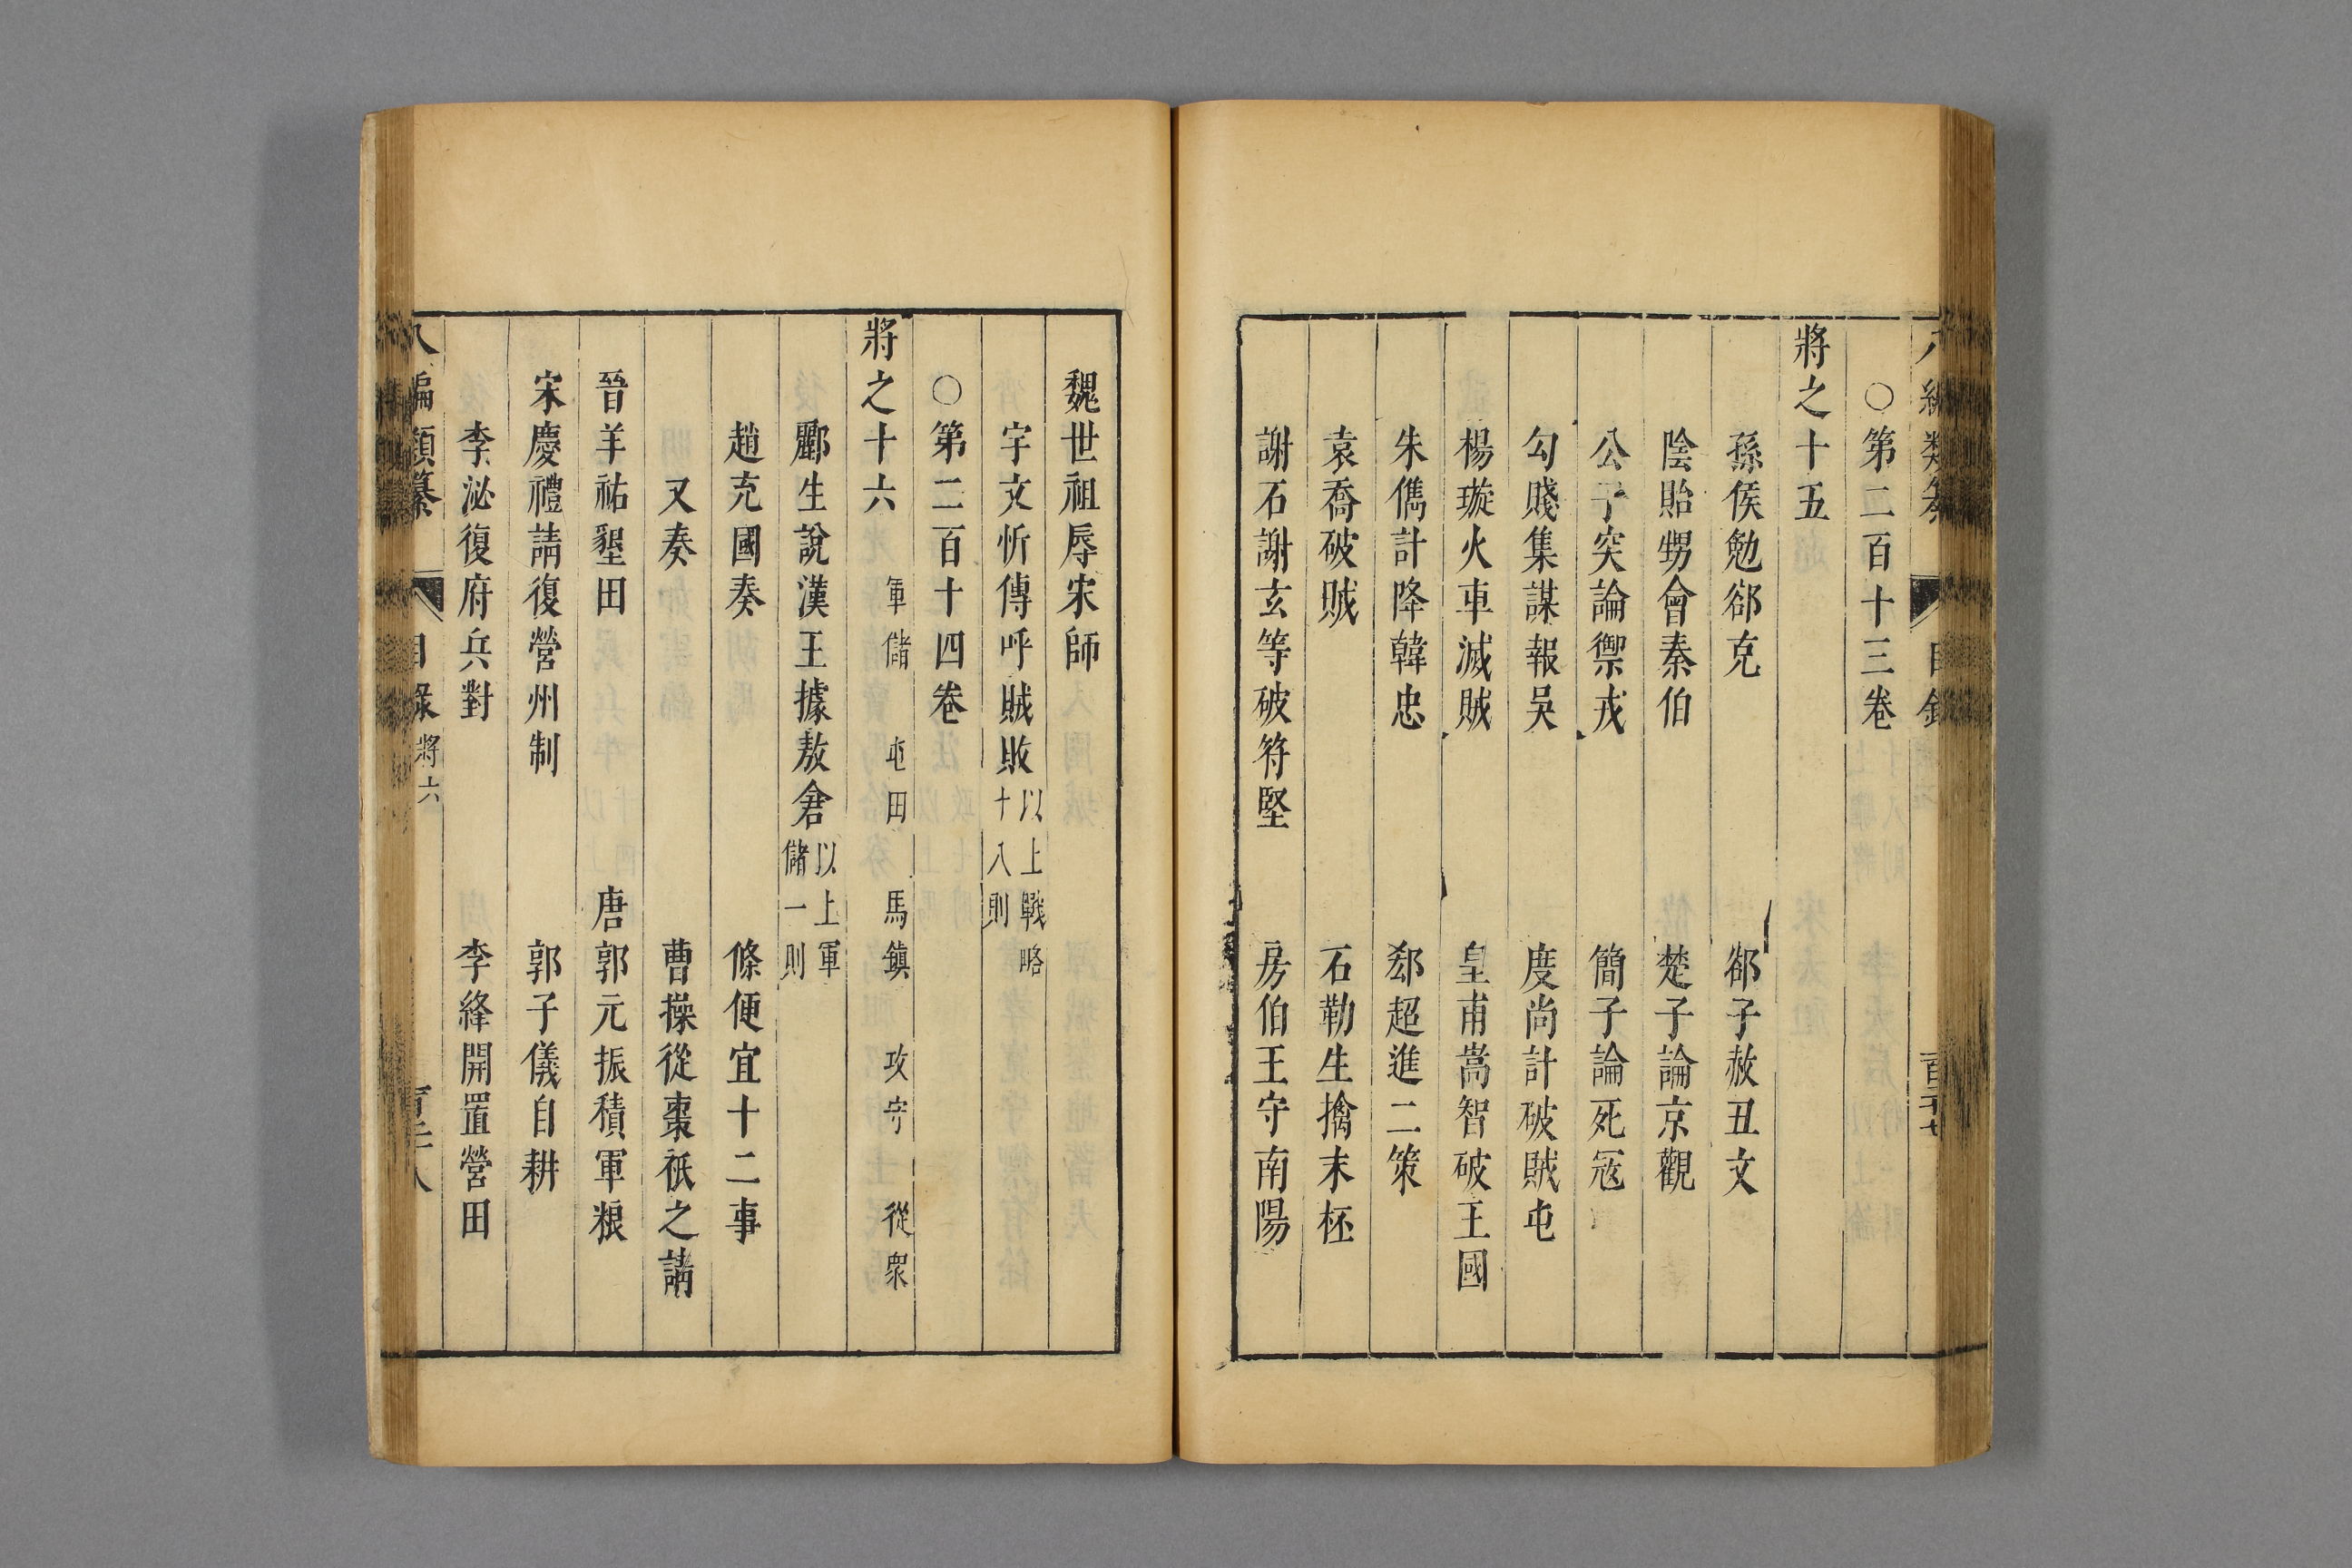 ○第二百十三卷
將之十五
孫侯勉郤克　郤子赦丑文
陰飴甥會秦伯　楚子論京觀
公子突論禦戎　簡子論死寇
勾賤集謀報吳　度尚計破賊屯
楊璇火車滅賊　皇甫嵩智破王國
朱儁計降韓忠　郄超進二策
袁喬破賊　石勒生擒末柸
謝石謝玄等破符堅　房伯王守南陽
魏世祖辱宋師
宇文忻傳呼賊敗　以上戰略十八則
○第二百十四卷
將之十六　軍儲　屯田　馬鎮　攻守　從衆
酈生說漢王據敖倉　以上軍儲一則
趙充國奏　條便宜十二事
又奏　曹操從棗祇之請
晉羊祜墾田　唐郭元振積軍粮
宋慶禮請復營州制　郭子儀自耕
李泌復府兵對　李絳開置營田
八編類纂　目錄　將六